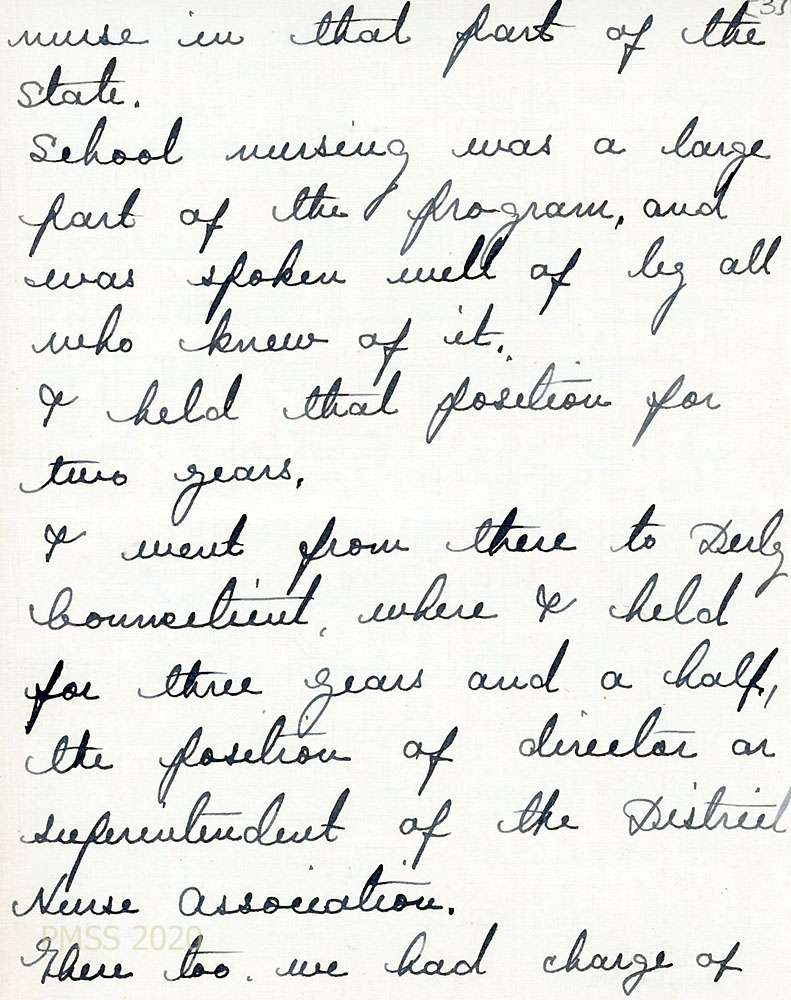 nurse in that part of the
State.
School nursing was a large
part of the program, and
was spoken well of by all
who knew of it.
I held that position for
two years.
I went from there to Derby
Connecticut, where I held
for three years and a half,
the position of director or
superintendent of the District
Nurse Association.
There too. we had charge of
PMSS 2020